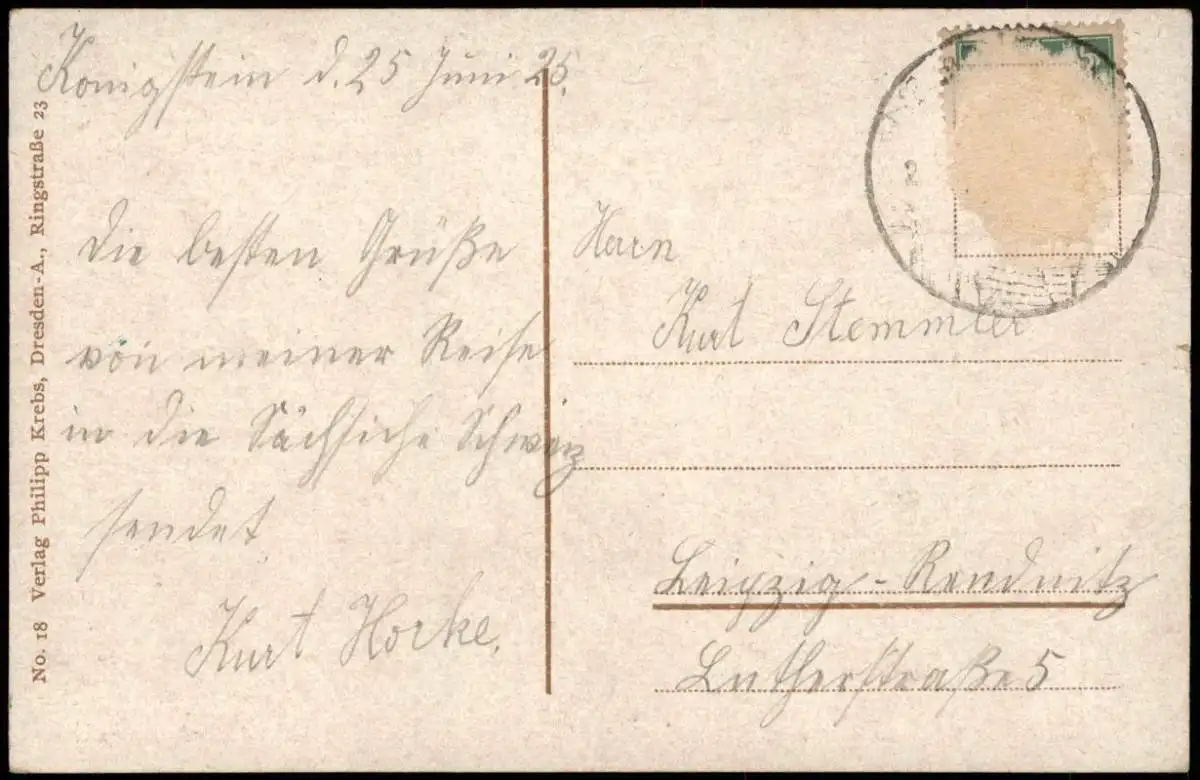 Königstein d. 25 Juni 25.
Die besten Grüße
von meiner Reise
in die Sächsiche Schweiz
sendet
Kurt Horke.
Herrn
Kurt Stemmler
Leipzig-Reudnitz
Lutherstraße 5
No. 18 Verlag Philipp Krebs, Dresden-A., Ringstraße 23